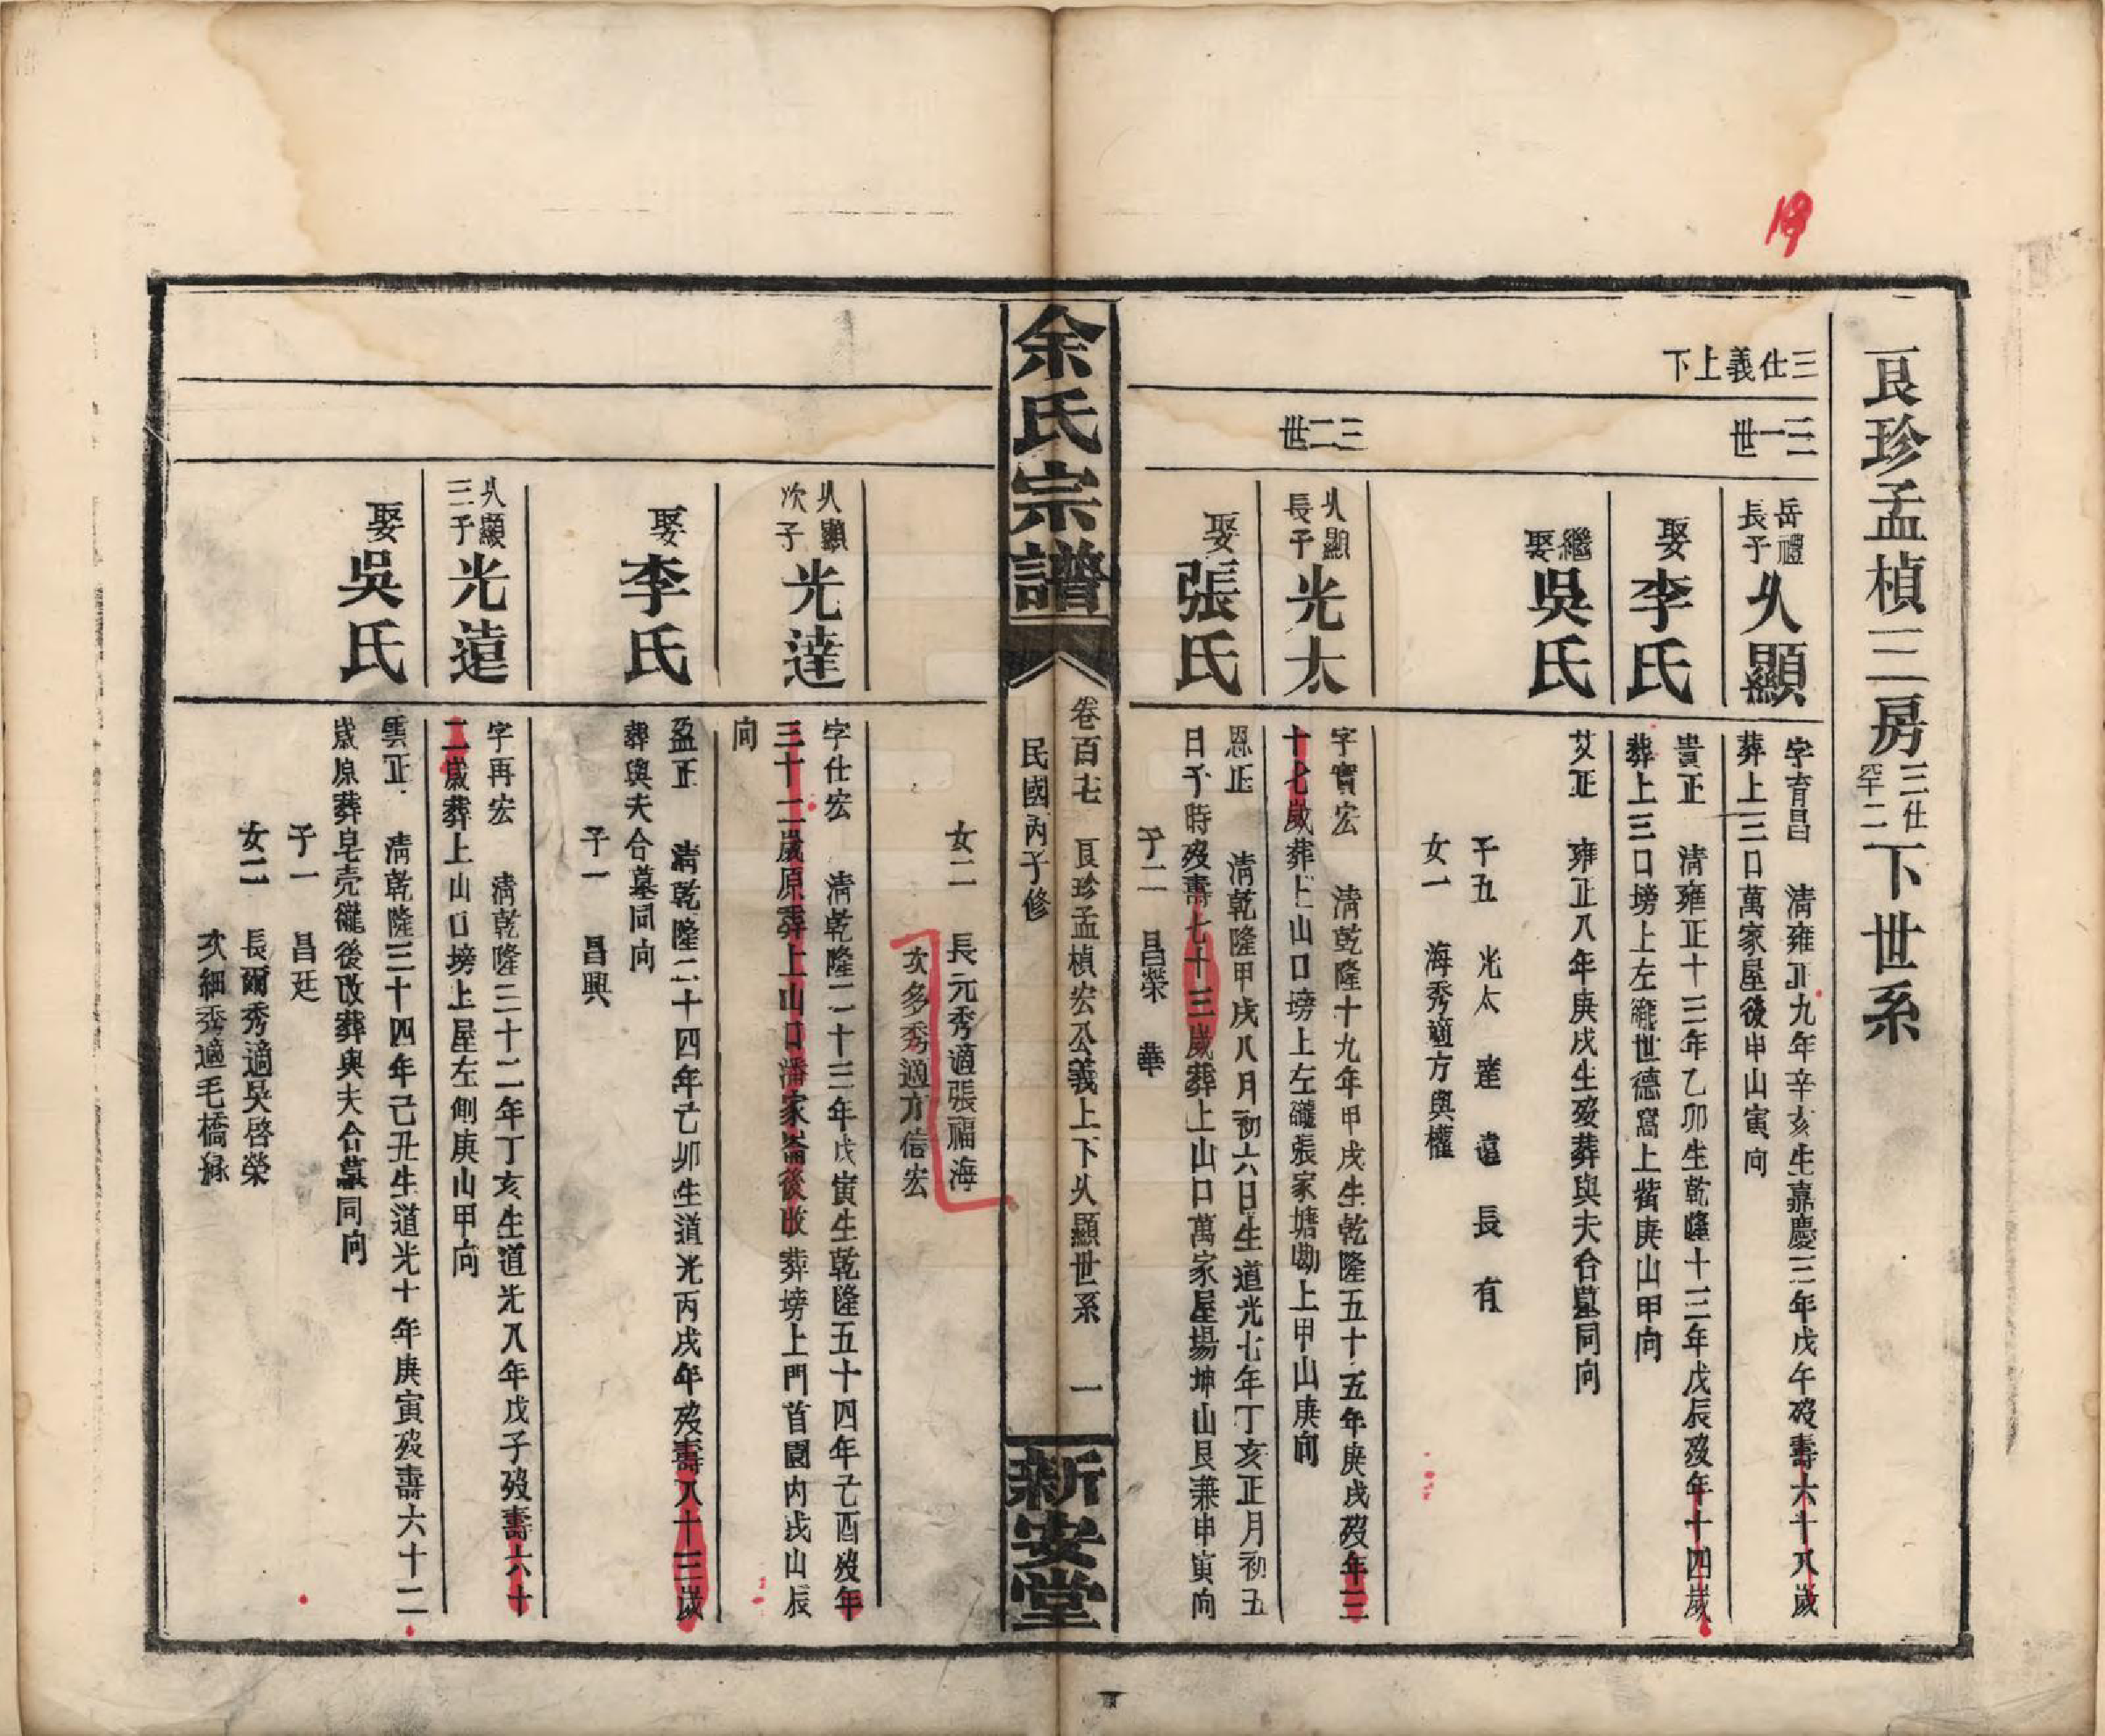 19
艮珍孟楨三房三仕下世系
三仕義上下
三一世
三二世
岳禮長子 乆顯
字育昌 清雍正九年辛亥生嘉慶三年戊午歿壽六十八歲
葬上三口萬家屋後申山寅向
娶李氏
貴正 清雍正十三年乙卯生乾隆十三年戊辰歿年十四歲
葬上三口塝上左䃧世德窩上背庚山甲向
繼娶吳氏
艾正 雍正八年庚戌生歿葬與夫合墓同向
子五 光太 達 遠 長 有
女一 海秀適方與權
乆顯長子 光太
字實宏 清乾隆十九年甲戌生乾隆五十五年庚戌歿年三
十七歲葬上山口塝上左䃧張家塘勘上甲山庚向
娶張氏
恩正 清乾隆甲戌八月初六日生道光七年丁亥正月初五
日子時歿壽七十三歲葬上山口萬家屋場坤山艮兼申寅向
子二 昌榮 華
余氏宗譜
卷百七 艮珍孟楨宏公義上下乆顯世系 一
民國丙子修
新安堂
女二 長元秀適張福海
次多秀適方信宏
乆顯次子 光達
字仕宏 清乾隆二十三年戊寅生乾隆五十四年己酉歿年
三十二歲原葬上山口潘家崙後改葬塝上門首園內戌山辰
向
娶李氏
盈正 清乾隆二十四年己卯生道光丙戌年歿壽八十三歲
葬與夫合墓同向
子一 昌興
乆顯三子 光遠
字再宏 清乾隆三十二年丁亥生道光八年戊子歿壽六十
二歲葬上山口塝上屋左側庚山甲向
娶吳氏
雲正 清乾隆三十四年己丑生道光十年庚寅歿壽六十二
歲原葬皂壳䃧後改葬與夫合墓同向
子一 昌廷
女二 長爾秀適吳啓榮
次細秀適毛橋綠